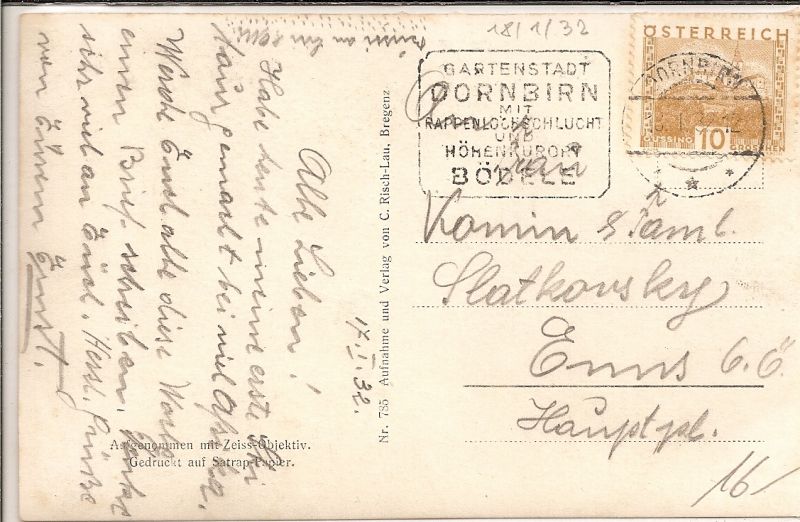 18/1/32
ÖSTERREICH
GÜSSING 10 GROSCHEN
DORNBIRN
GARTENSTADT
DORNBIRN
MIT
RAPPENLOCHSCHLUCHT
UND
HÖHENKURORT
BÖDELE
An
Frau
Komin & Faml.
Slatkovsky
Enns O.Ö.
Hauptpl.
16
17.I.32.
Alle Lieben!
Habe heute meine erste Ski
tour gemacht bei viel
Werde Euch alle diese Woche
einen Brief schreiben. Denke
sehr viel an Euch. Herzl. Grüße
von Eurem Ernst.
Nr. 785 Aufnahme und Verlag von C. Risch-Lau, Bregenz
Aufgenommen mit Zeiss-Objektiv.
Gedruckt auf Satrap-Papier.